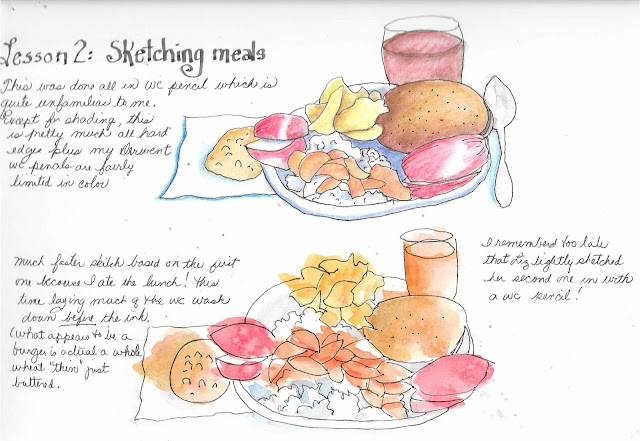 Lesson 2: Sketching meals
This was done all in WC pencil which is
quite unfamiliar to me.
Except for shading, this
is pretty much all hard
edges plus my Derwent
WC pencils are fairly
limited in color
much faster sketch based on the first
one because I ate the lunch! This
time laying much of the WC wash
down before the ink.
(what appears to be a
burger is actual a whole
wheat "thin" just
buttered.
I rememberd too late
that Liz lightly sketched
her second one in with
a WC pencil!